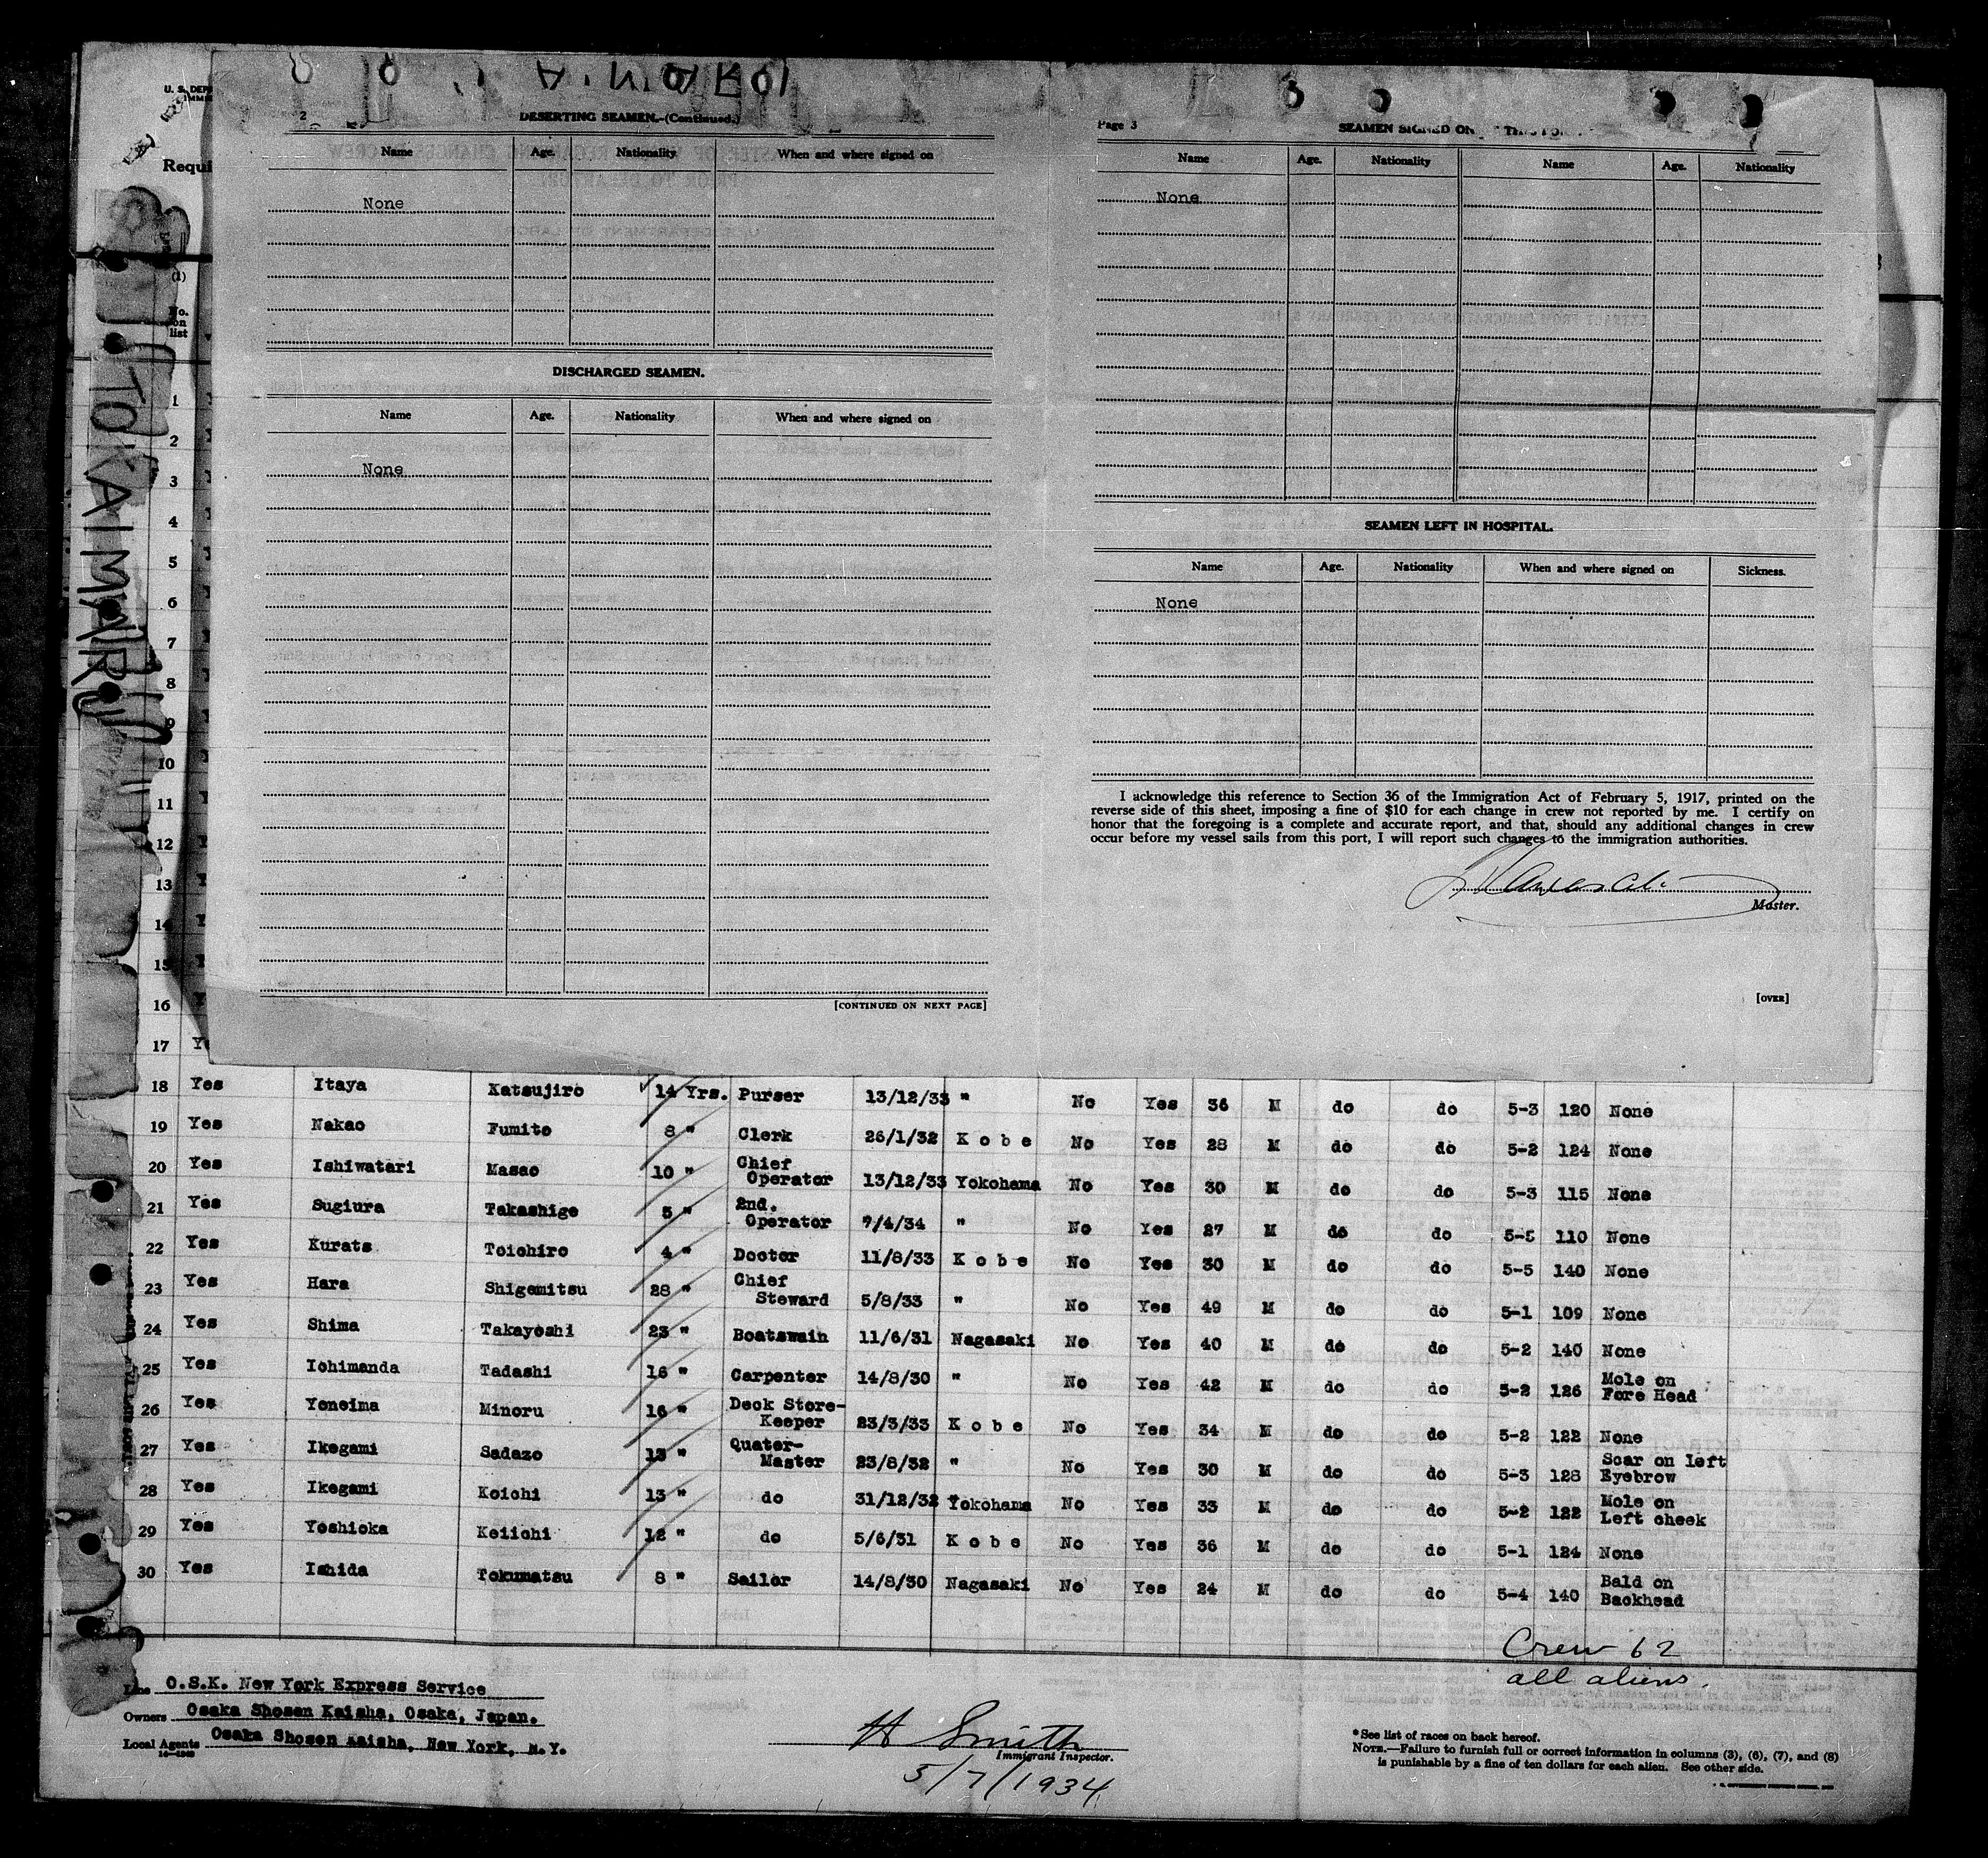 U. S. DEP
Requi
TOKAI MARU
(1)
No. on list
2
DESERTING SEAMEN.-(Continued.)
Name Age. Nationality When and where signed on
None
DISCHARGED SEAMEN.
Name Age. Nationality When and where signed on
None
[CONTINUED ON NEXT PAGE]
Page 3
SEAMEN SIGNED ON
Name Age. Nationality Name Age. Nationality
None
SEAMEN LEFT IN HOSPITAL.
Name Age. Nationality When and where signed on Sickness.
None
I acknowledge this reference to Section 36 of the Immigration Act of February 5, 1917, printed on the
reverse side of this sheet, imposing a fine of $10 for each change in crew not reported by me. I certify on
honor that the foregoing is a complete and accurate report, and that, should any additional changes in crew
occur before my vessel sails from this port, I will report such changes to the immigration authorities.
Master.
[OVER]
1
2
3
4
5
6
7
8
9
10
11
12
13
14
15
16
17
18 Yes Itaya Katsujiro 14 Yrs. Purser 13/12/33 " No Yes 36 M do do 5-3 120 None
19 Yes Nakao Fumito 8 " Clerk 26/1/32 Kobe No Yes 28 M do do 5-2 124 None
20 Yes Ishiwatari Masao 10 " Chief Operator 13/12/33 Yokohama No Yes 30 M do do 5-3 115 None
21 Yes Sugiura Takashige 5 " 2nd. Operator 7/4/34 " No Yes 27 M do do 5-5 110 None
22 Yes Kurata Toichiro 4 " Doctor 11/8/33 Kobe No Yes 30 M do do 5-5 140 None
23 Yes Hara Shigemitsu 28 " Chief Steward 5/8/33 " No Yes 49 M do do 5-1 109 None
24 Yes Shima Takayoshi 23 " Boatswain 11/6/31 Nagasaki No Yes 40 M do do 5-2 140 None
25 Yes Ichimanda Tadashi 16 " Carpenter 14/8/30 " No Yes 42 M do do 5-2 126 Mole on Fore Head
26 Yes Yoneima Minoru 16 " Deck Store-Keeper 23/3/33 Kobe No Yes 34 M do do 5-2 122 None
27 Yes Ikegami Sadazo 13 " Quater-Master 23/8/32 " No Yes 30 M do do 5-3 128 Scar on left Eyebrow
28 Yes Ikegami Koichi 13 " do 31/12/32 Yokohama No Yes 33 M do do 5-2 122 Mole on Left cheek
29 Yes Yoshioka Keiichi 12 " do 5/6/31 Kobe No Yes 36 M do do 5-1 124 None
30 Yes Ishida Tokumatsu 8 " Sailor 14/8/30 Nagasaki No Yes 24 M do do 5-4 140 Bald on Backhead
Crew 62
all aliens.
Line O.S.K. New York Express Service
Owners Osaka Shosen Kaisha, Osaka, Japan.
Local Agents Osaka Shosen Kaisha, New York, N.Y.
H Smith
Immigrant Inspector.
5/7/1934
*See list of races on back hereof.
NOTE.—Failure to furnish full or correct information in columns (3), (6), (7), and (8)
is punishable by a fine of ten dollars for each alien. See other side.